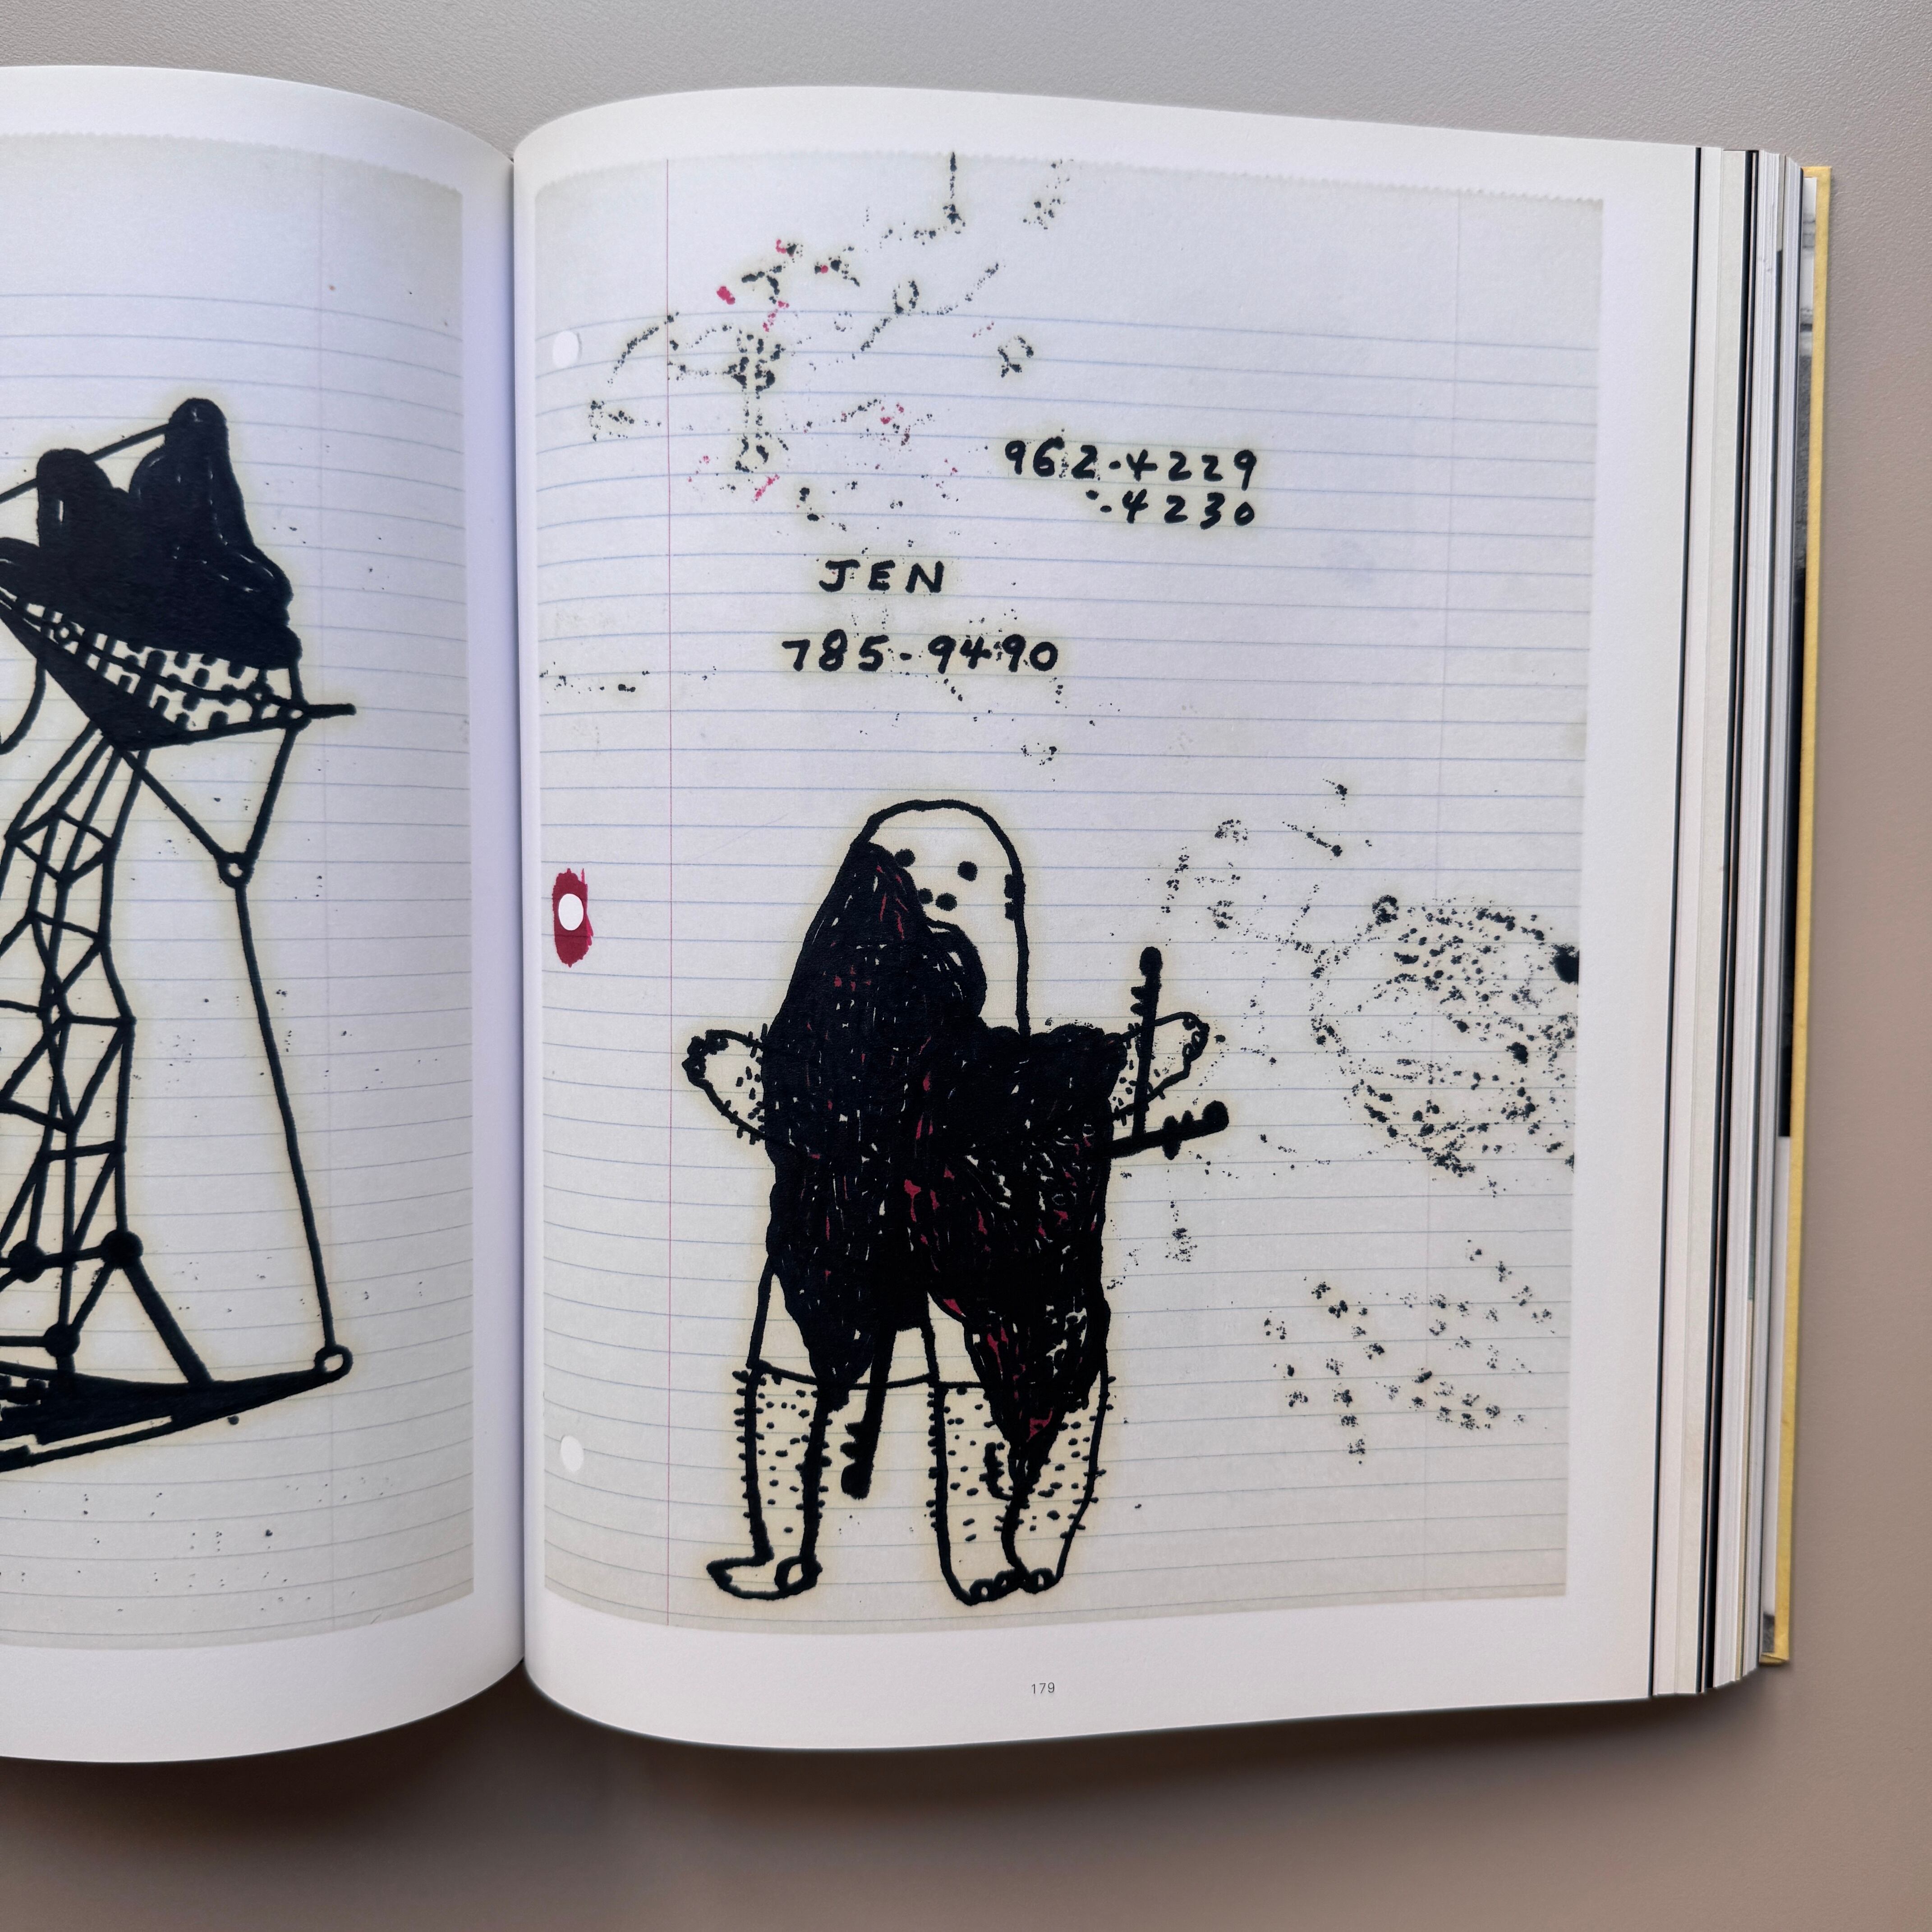 962-4229
"-4230
JEN
785-9490
179